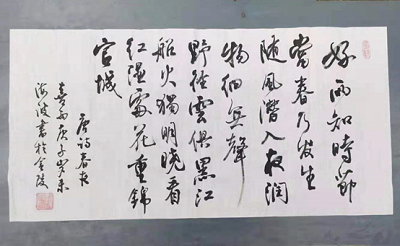 好雨知時節
當春乃发生
随風潛入夜潤
物細無聲
野徑雲俱黑江
船火獨明曉看
红濕處花重錦
官城
唐詩春夜
喜雨庚子岁末
海波書於金陵